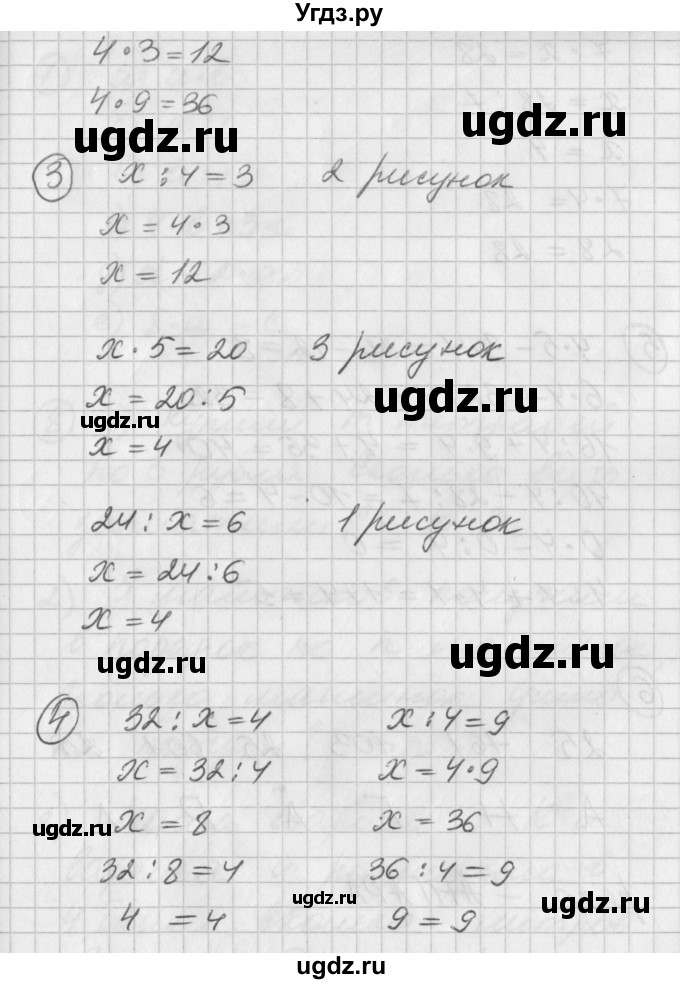 Угдз.ру
4·3=12
4·9=36
ugdz.ru
ugdz.ru
3 x:4=3 2 рисунок
x=4·3
x=12
x·5=20 3 рисунок
x=20:5
ugdz.ru
ugdz.ru
x=4
24:x=6 1 рисунок
x=24:6
x=4
ugdz.ru
ugdz.ru
4 32:x=4 x:4=9
x=32:4 x=4·9
ugdz.ru
x=8 x=36
32:8=4 36:4=9
ugdz.ru
ugdz.ru
4=4 9=9
ugdz.ru